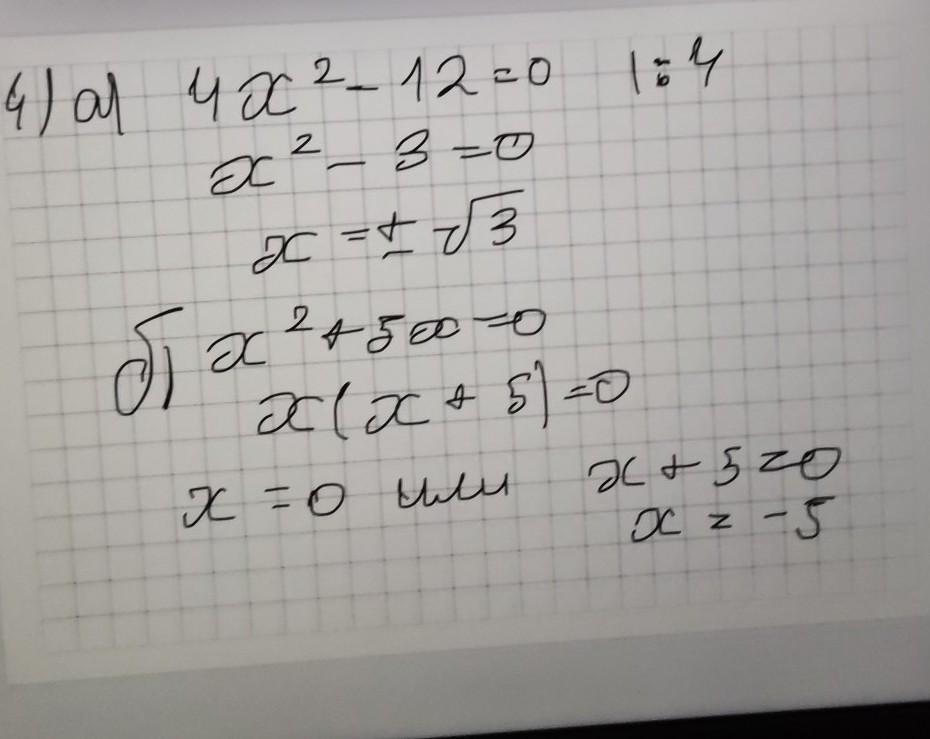 4) а) 4x² - 12 = 0 |:4
x² - 3 = 0
x = ± √3
б) x² + 5x = 0
x(x + 5) = 0
x = 0 или x + 5 = 0
x = -5